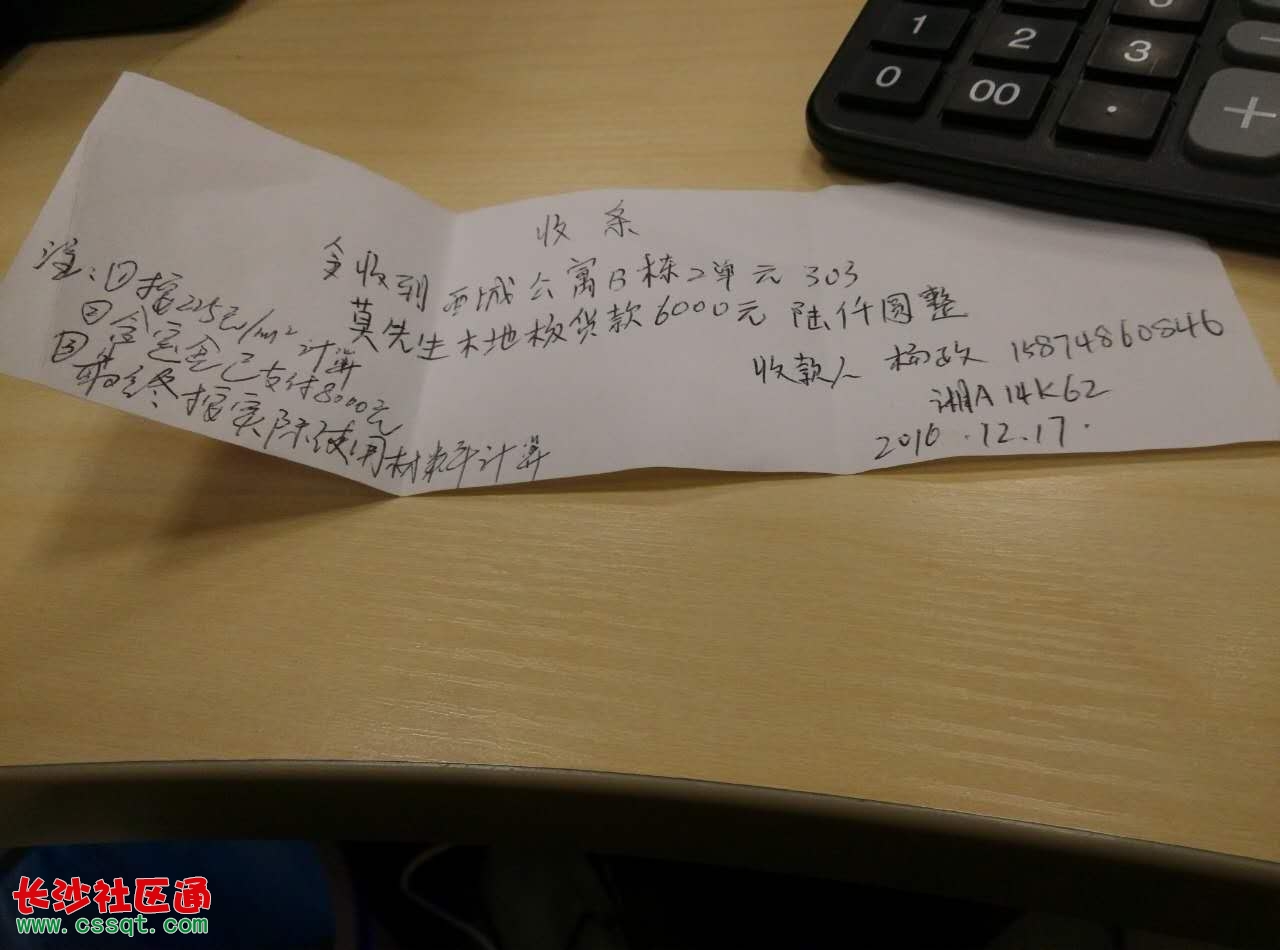 收条
今收到西城公寓B栋2单元303
莫先生木地板货款6000元 陆仟圆整
收款人 杨政 15874860846
湘A14K62
2016.12.17.
注:①按225元/m²计算
②含定金已支付8000元
③最终按实际使用材料计算
1 2 3
0 00 · +
长沙社区通
www.cssqt.com